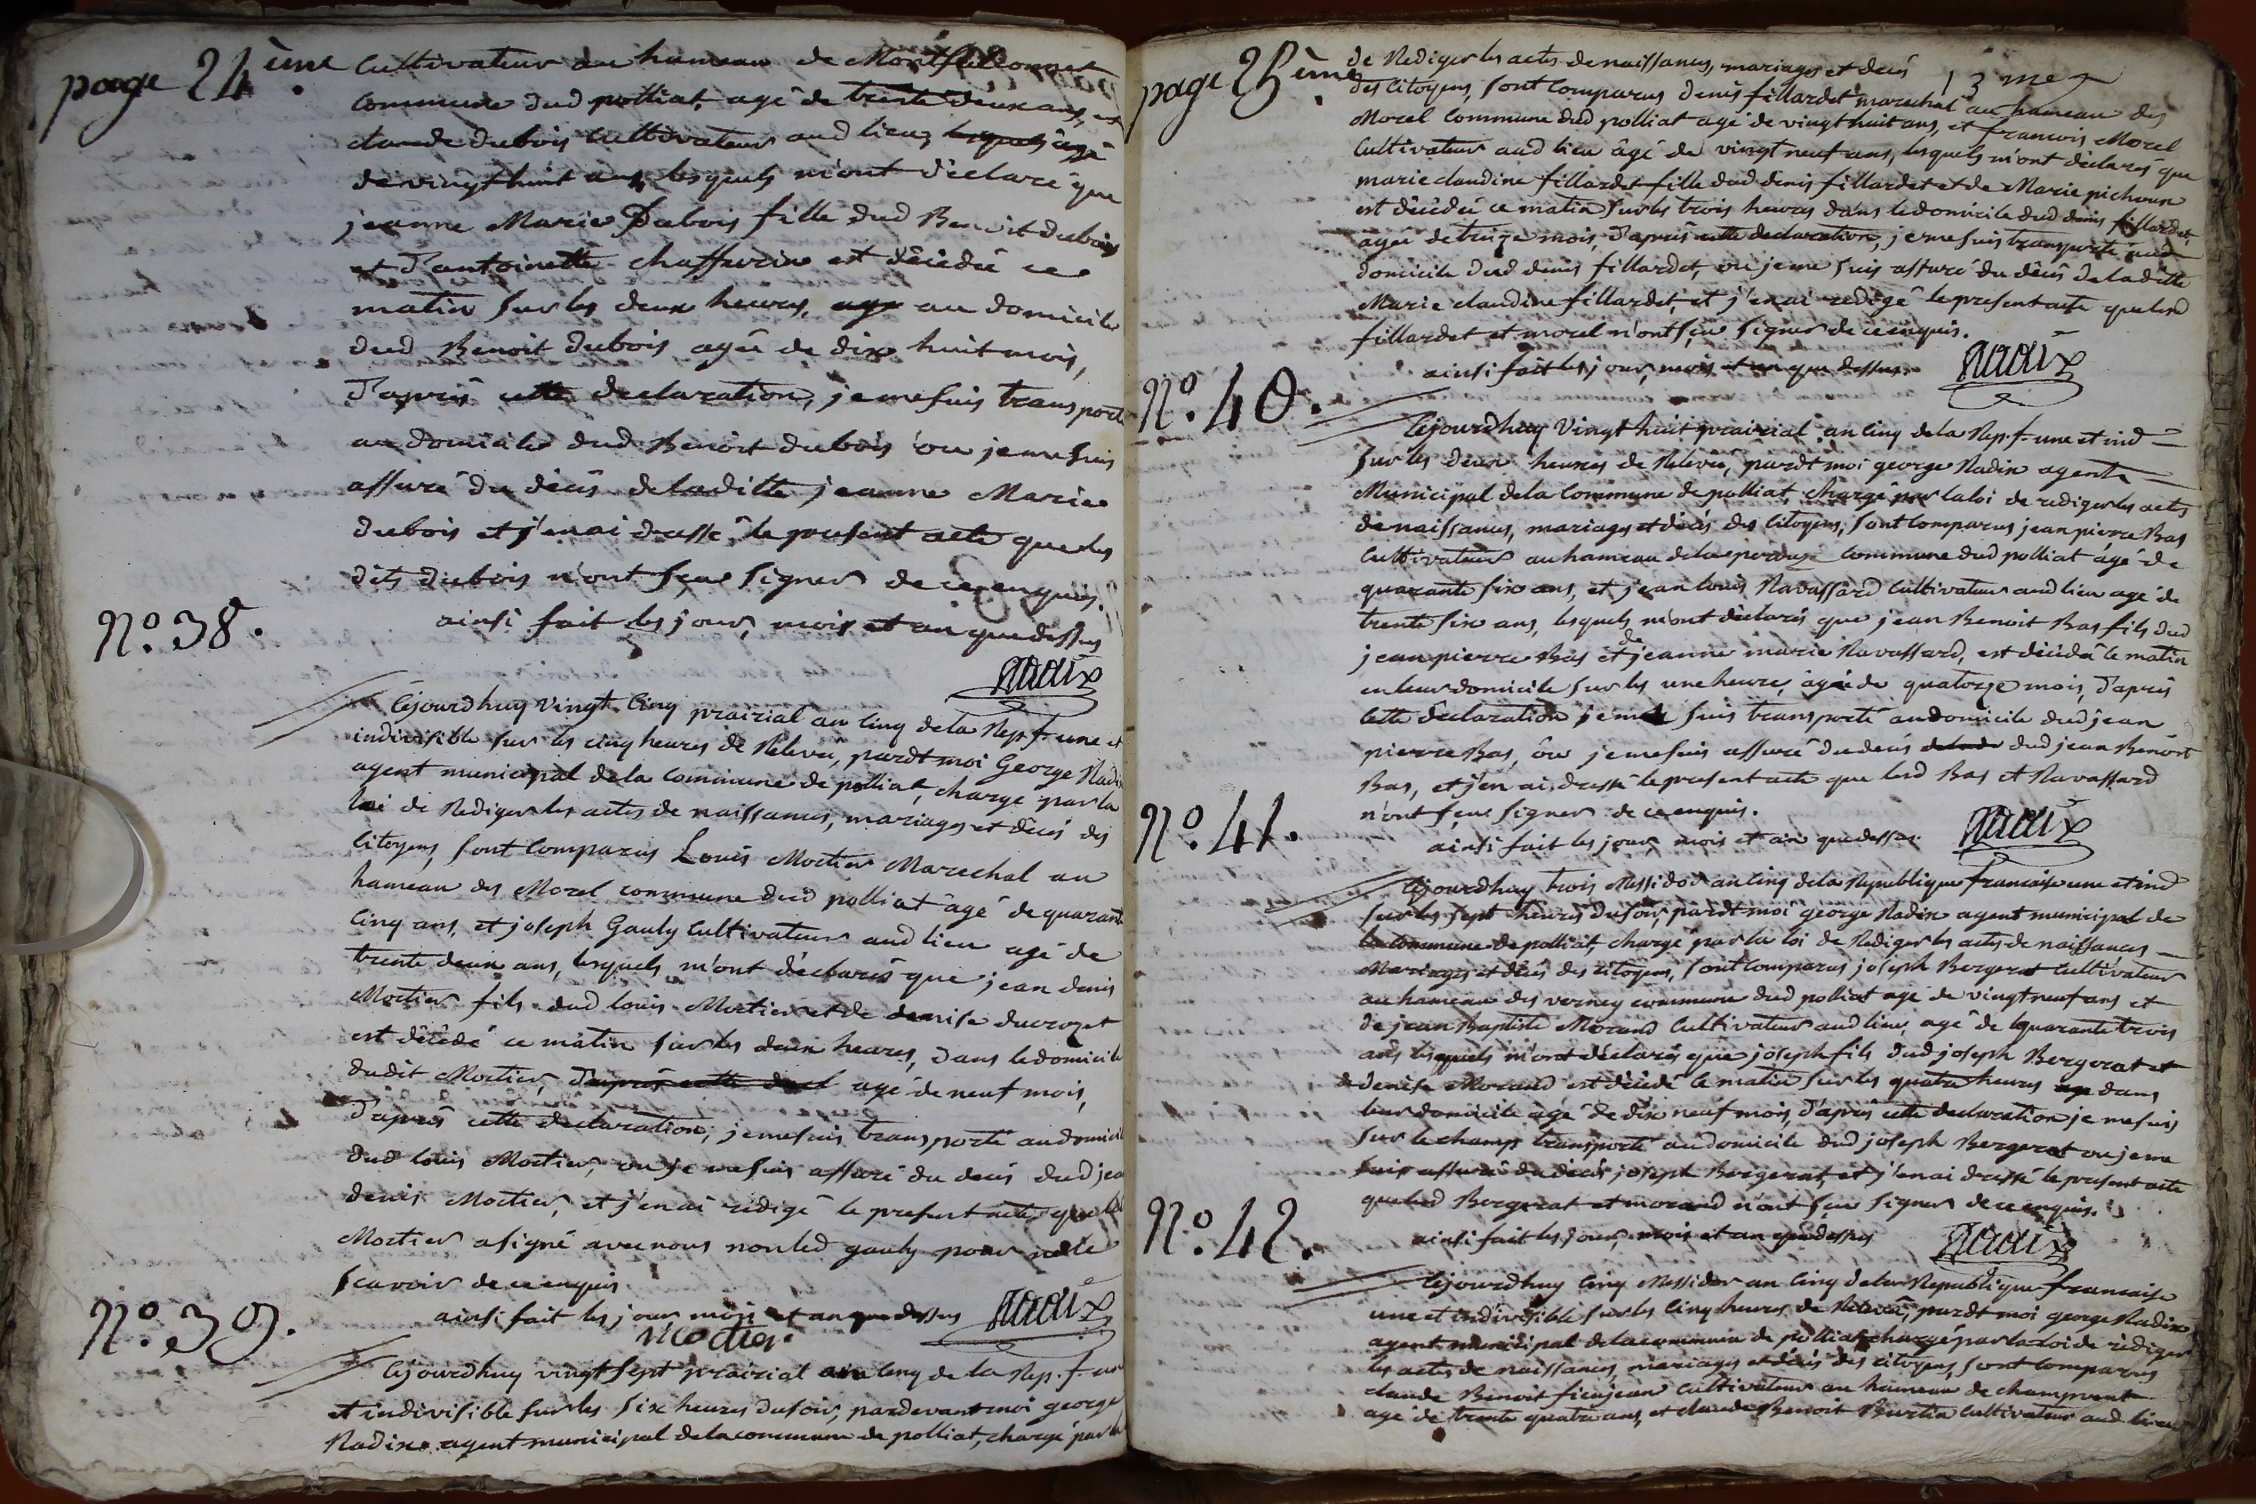 page 24.ème
Cultivateur au hameau de
Commune dud polliat, agé de trente deux ans, et
claude dubois Cultivateur aud lieu, lesquels agé
de vingt huit ans, lesquels m'ont déclaré que
jeanne Marie Dubois fille dud Benoit dubois
et d'antoinette chaffurin est décédée ce
matin sur les deux heures, age au domicile
dud Benoit dubois agée de dix huit mois,
D'après cette declaration, je me suis transporté
au domicile dud Benoit dubois ou je me suis
assuré du décès de laditte jeanne Marie
dubois et j'en ai dressé le present acte que les
dits dubois n'ont sçeu signer de ce enquis.
ainsi fait les jour, mois et an que dessus
Nadix
N.o 38.
Cejourdhuy vingt Cinq prairial an Cinq de la Rep. f. une et
indivisible sur les cinq heures de Relevée, pardt moi George Nadix
agent municipal de la Commune de polliat, chargé par la
loi de Rediger les actes de naissances, mariages et décès des
Citoyens, sont Comparus Louis Mortier Marechal au
hameau des Morel commune dud polliat âgé de quarante
Cinq ans, et joseph Gauly Cultivateur aud lieu agé de
trente deux ans, lesquels m'ont déclarés que jean denis
Mortier fils dud louis Mortier et de denise ducrozet
est décédé ce matin sur les deux heures, dans le domicile
dudit Mortier, D'après cette decl agé de neuf mois,
D'après cette declaration, je me suis transporté au domicile
dud louis Mortier, ou je me suis assuré du décès dud jean
denis Mortier, et j'en ai redigé le present acte que led
Mortier a signé avec nous non led gauly pour ne le
scavoir de ce enquis
ainsi fait les jour mois et an que dessus
Nadix
Mortier
N.o 39.
Cejourdhuy vingt Sept prairial an Cinq de la Rep. f. une
et indivisible sur les six heures du soir, pardevant moi george
Nadix agent municipal de la commune de polliat, chargé par la
page 25.ème
13 me
de Rediger les actes de naissances, mariages et décès
des Citoyens, sont Comparus denis fillardet marechal au hameau des
Morel Commune dud polliat agé de vingt huit ans, et francois Morel
Cultivateur aud lieu âgé de vingt neuf ans, lesquels m'ont déclarés que
marie claudine fillardet fille dud denis fillardet et de Marie pichoux
est décédée ce matin sur les trois heures dans le domicile dud denis fillardet,
agée de treize mois, D'après cette declaration, je me suis transporté aud
domicile dud denis fillardet, ou je me suis assuré du décès de laditte
Marie claudine fillardet, et j'en ai redigé le present acte que lesd
fillardet et morel n'ont sçeu signer de ce enquis.
ainsi fait les jour, mois et an que dessus.
Nadix
N.o 40.
Cejourdhuy Vingt huit prairial an Cinq de la Rep. f. une et ind
sur les deux heures de Relevée, pardt moi george Nadix agent
Municipal de la Commune de polliat, chargé par la loi de rediger les actes
de naissances, mariages et décès des Citoyens, sont Comparus jean pierre Bas
Cultivateur au hameau de la Commune dud polliat âgé de
quarante six ans, et jean louis Navassard Cultivateur aud lieu agé de
trente six ans, lesquels m'ont déclarés que jean Benoit Bas fils dud
jean pierre Bas et de jeanne marie Navassard, est décédé le matin
en leur domicile sur les une heure, âgé de quatorze mois, D'après
Cette Declaration je me suis transporté au domicile dud jean
pierre Bas, ôu je me suis assuré du décès de lade dud jean Benoit
Bas, et j'en ai dressé le present acte que lesd Bas et Navassard
n'ont sçeu signer de ce enquis.
ainsi fait les jour, mois et an que dessus.
Nadix
N.o 41.
Cejourdhuy trois Messidor an Cinq de la Republique francaise une et ind
sur les sept heures du soir, pardt moi george Nadix agent municipal de
la Commune de polliat, chargé par la loi de Rediger les actes de naissances
Mariages et décès des citoyens, sont Comparus joseph Bergerat Cultivateur
au hameau des verney commune dud polliat agé de vingt neuf ans et
de jean Baptiste Morand Cultivateur aud lieu, agé de quarante trois
ans lesquels m'ont déclarés que joseph fils dud joseph Bergerat et
de denise Morand est décédé le matin sur les quatre heures age dans
leur domicile agé de dix neuf mois, d'après cette declaration je me suis
sur le champ transporté au domicile dud joseph Bergerat ou je me
suis assuré du décès joseph Bergerat, et j'en ai dressé le present acte
que lesd Bergerat et morand n'ont sçeu signer de ce enquis.
ainsi fait les jour, mois et an que dessus
Nadix
N.o 42.
Cejourdhuy Cinq Messidor an Cinq de la Republique francaise
une et indivisible sur les Cinq heures de Relevée, pardt moi george Nadix
agent municipal de la commune de polliat, chargé par la loi de rediger
les actes de naissances, mariages et décès des citoyens, sont Comparus
claude Benoit Cultivateur au hameau de champvent
agé de trente quatre ans, et claude Benoit Burtin Cultivateur aud lieu